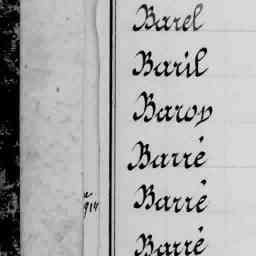 Barel
Baril
Baron
Barré
Barré
914
Barré